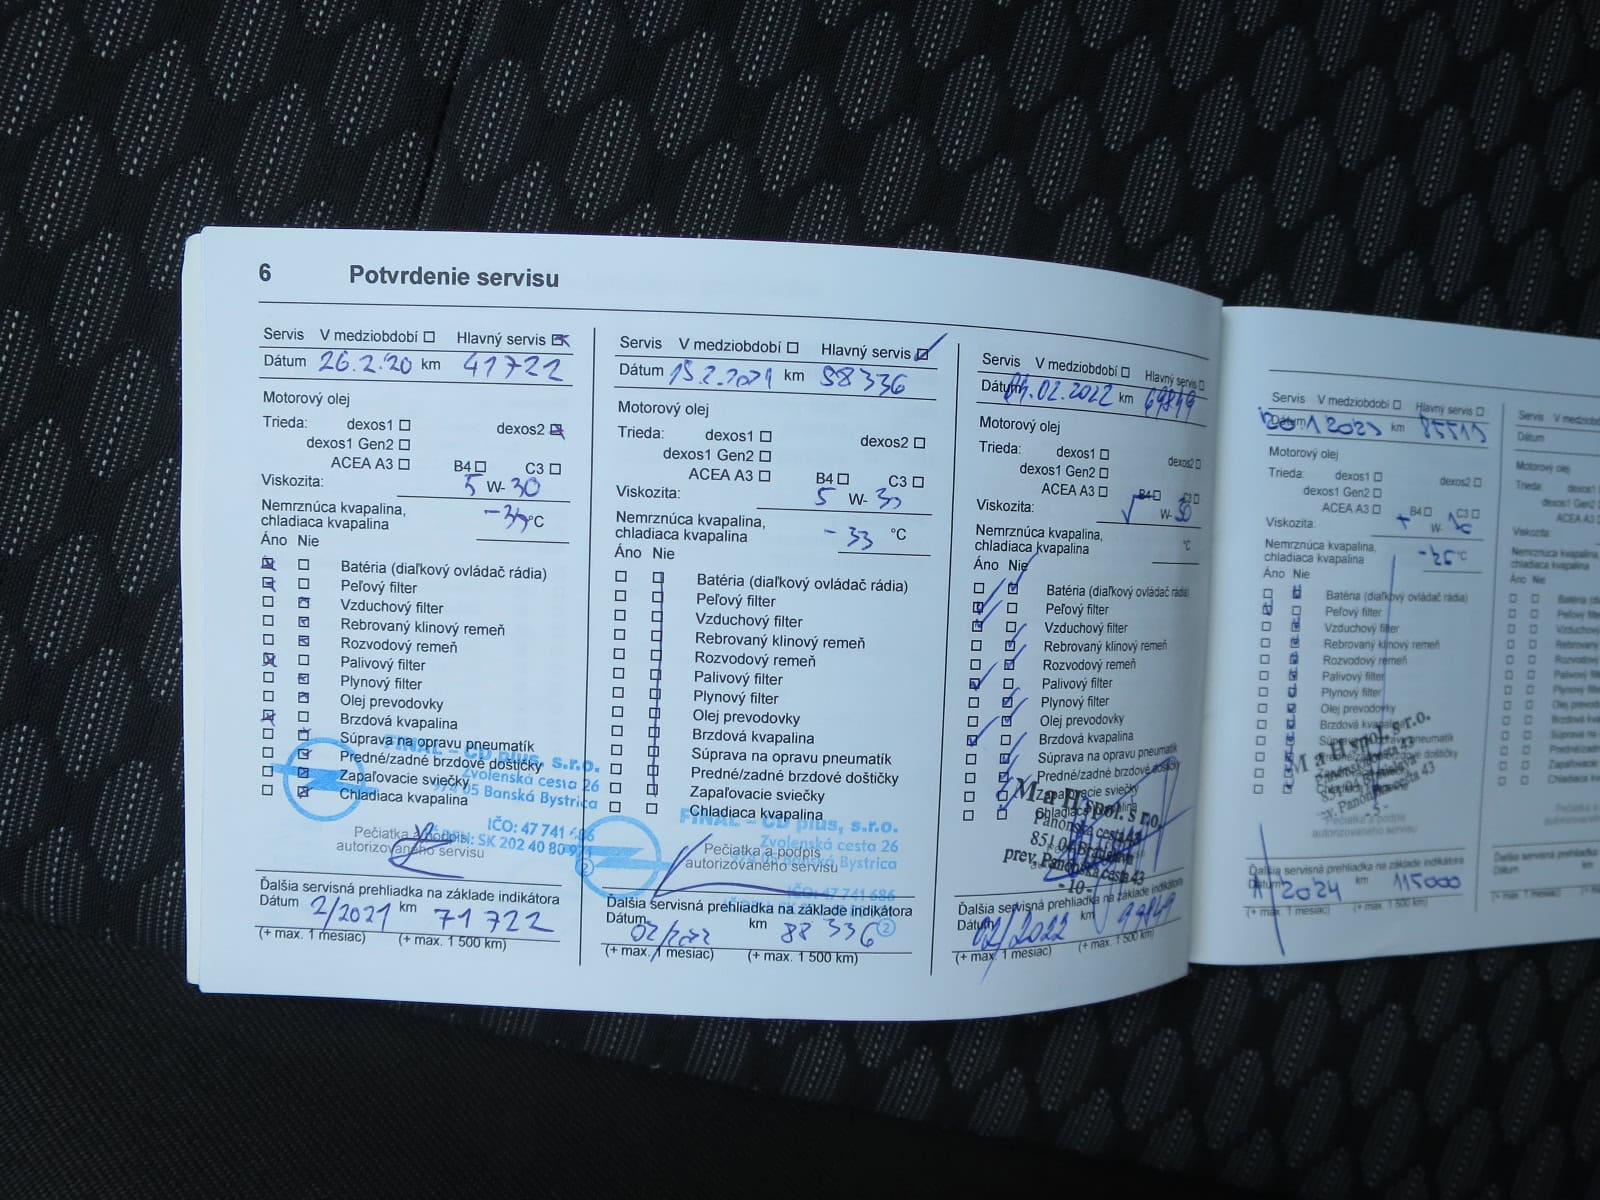 6 Potvrdenie servisu
Servis V medziobdobí Hlavný servis
Dátum 26.2.20 km 41722
Motorový olej
Trieda: dexos1 dexos2
dexos1 Gen2
ACEA A3 B4 C3
Viskozita: 5 W-30
Nemrznúca kvapalina,
chladiaca kvapalina °C
Áno Nie
Batéria (diaľkový ovládač rádia)
Peľový filter
Vzduchový filter
Rebrovaný klinový remeň
Rozvodový remeň
Palivový filter
Plynový filter
Olej prevodovky
Brzdová kvapalina
Súprava na opravu pneumatík
Predné/zadné brzdové doštičky
Zapaľovacie sviečky
Chladiaca kvapalina
FINAL – CD plus, s.r.o.
Zvolenská cesta 26
974 05 Banská Bystrica
IČO: 47 741 686
Pečiatka a podpis
autorizovaného servisu
Ďalšia servisná prehliadka na základe indikátora
Dátum 2/2021 km 71 722
(+ max. 1 mesiac) (+ max. 1 500 km)
Servis V medziobdobí Hlavný servis
Dátum 15.2.2021 km 58336
Motorový olej
Trieda: dexos1 dexos2
dexos1 Gen2
ACEA A3 B4 C3
Viskozita: 5 W-
Nemrznúca kvapalina,
chladiaca kvapalina -33 °C
Áno Nie
Batéria (diaľkový ovládač rádia)
Peľový filter
Vzduchový filter
Rebrovaný klinový remeň
Rozvodový remeň
Palivový filter
Plynový filter
Olej prevodovky
Brzdová kvapalina
Súprava na opravu pneumatík
Predné/zadné brzdové doštičky
Zapaľovacie sviečky
Chladiaca kvapalina
FINAL – CD plus, s.r.o.
Zvolenská cesta 26
Banská Bystrica
IČO: 47 741 686
Pečiatka a podpis
autorizovaného servisu
2
Ďalšia servisná prehliadka na základe indikátora
Dátum 02/2022 km 88 336
(+ max. 1 mesiac) (+ max. 1 500 km)
Servis V medziobdobí Hlavný servis
Dátum 02.2022 km 69849
Motorový olej
Trieda: dexos1 dexos2
dexos1 Gen2
ACEA A3 B4 C3
Viskozita: W-30
Nemrznúca kvapalina,
chladiaca kvapalina °C
Áno Nie
Batéria (diaľkový ovládač rádia)
Peľový filter
Vzduchový filter
Rebrovaný klinový remeň
Rozvodový remeň
Palivový filter
Plynový filter
Olej prevodovky
Brzdová kvapalina
Súprava na opravu pneumatík
Predné/zadné brzdové doštičky
Zapaľovacie sviečky
Chladiaca kvapalina
M a H spol. s r.o.
Panónska cesta 43
prev. Panónska cesta 43
- 10 -
Ďalšia servisná prehliadka na základe indikátora
Dátum 02/2023 km 99849
(+ max. 1 mesiac) (+ max. 1 500 km)
Servis V medziobdobí Hlavný servis
Dátum 2023 km
Motorový olej
Trieda: dexos1 dexos2
dexos1 Gen2
ACEA A3 B4 C3
Viskozita: W-
Nemrznúca kvapalina,
chladiaca kvapalina °C
Áno Nie
Batéria (diaľkový ovládač rádia)
Peľový filter
Vzduchový filter
Rebrovaný klinový remeň
Rozvodový remeň
Palivový filter
Plynový filter
Olej prevodovky
Brzdová kvapalina
M a H spol. s r.o.
Pečiatka a podpis
autorizovaného servisu
Ďalšia servisná prehliadka na základe indikátora
Dátum 2024 km 115000
(+ max. 1 mesiac) (+ max. 1 500 km)
Servis V medziobdobí
Dátum
Motorový olej
Trieda: dexos1
dexos1 Gen2
ACEA A3
Viskozita:
Nemrznúca kvapalina,
chladiaca kvapalina
Áno Nie